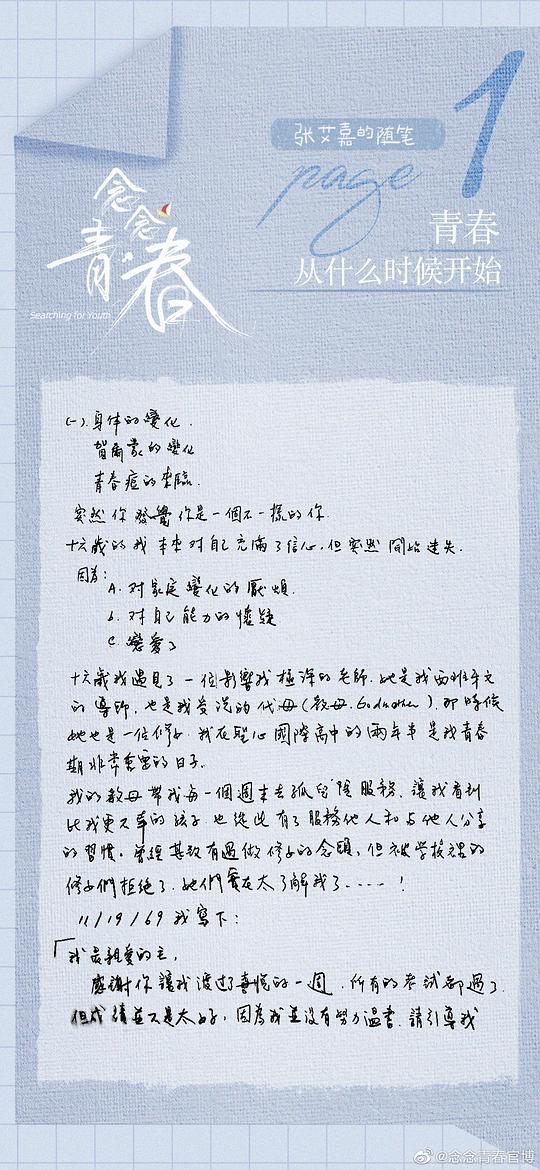 张艾嘉的随笔
page 1
念念
青春
Searching for Youth
青春
从什么时候开始
(一).身体的變化.
賀爾蒙的變化
青春痘的來臨.
突然你發覺你是一個不一樣的你.
十六歲的我本來對自己充滿了信心,但突然開始迷失.
因為:
A. 对家庭變化的厭煩.
b. 对自己能力的懷疑
c. 戀愛了
十六歲我遇見了一位影響我極深的老師.她是我西班牙文
的導師,也是我受洗的代母(教母.Godmother).那時候
她也是一位修女.我在聖心國際高中的兩年半是我青春
期非常重要的日子.
我的教母帶我每一個週末去孤兒院服務.讓我看到
比我更不幸的孩子也從此有了服務他人和与他人分享
的習慣.曾經甚致有過做修女的念頭,但被学校裡的
修女們拒絕了.她們實在太了解我了.....!
11/19/69 我寫下:
「我最親愛的主,
感謝你讓我渡过了喜悅的一週.所有的考試都過了
但成績並不是太好,因為我並没有努力溫書.請引導我
@念念青春官博